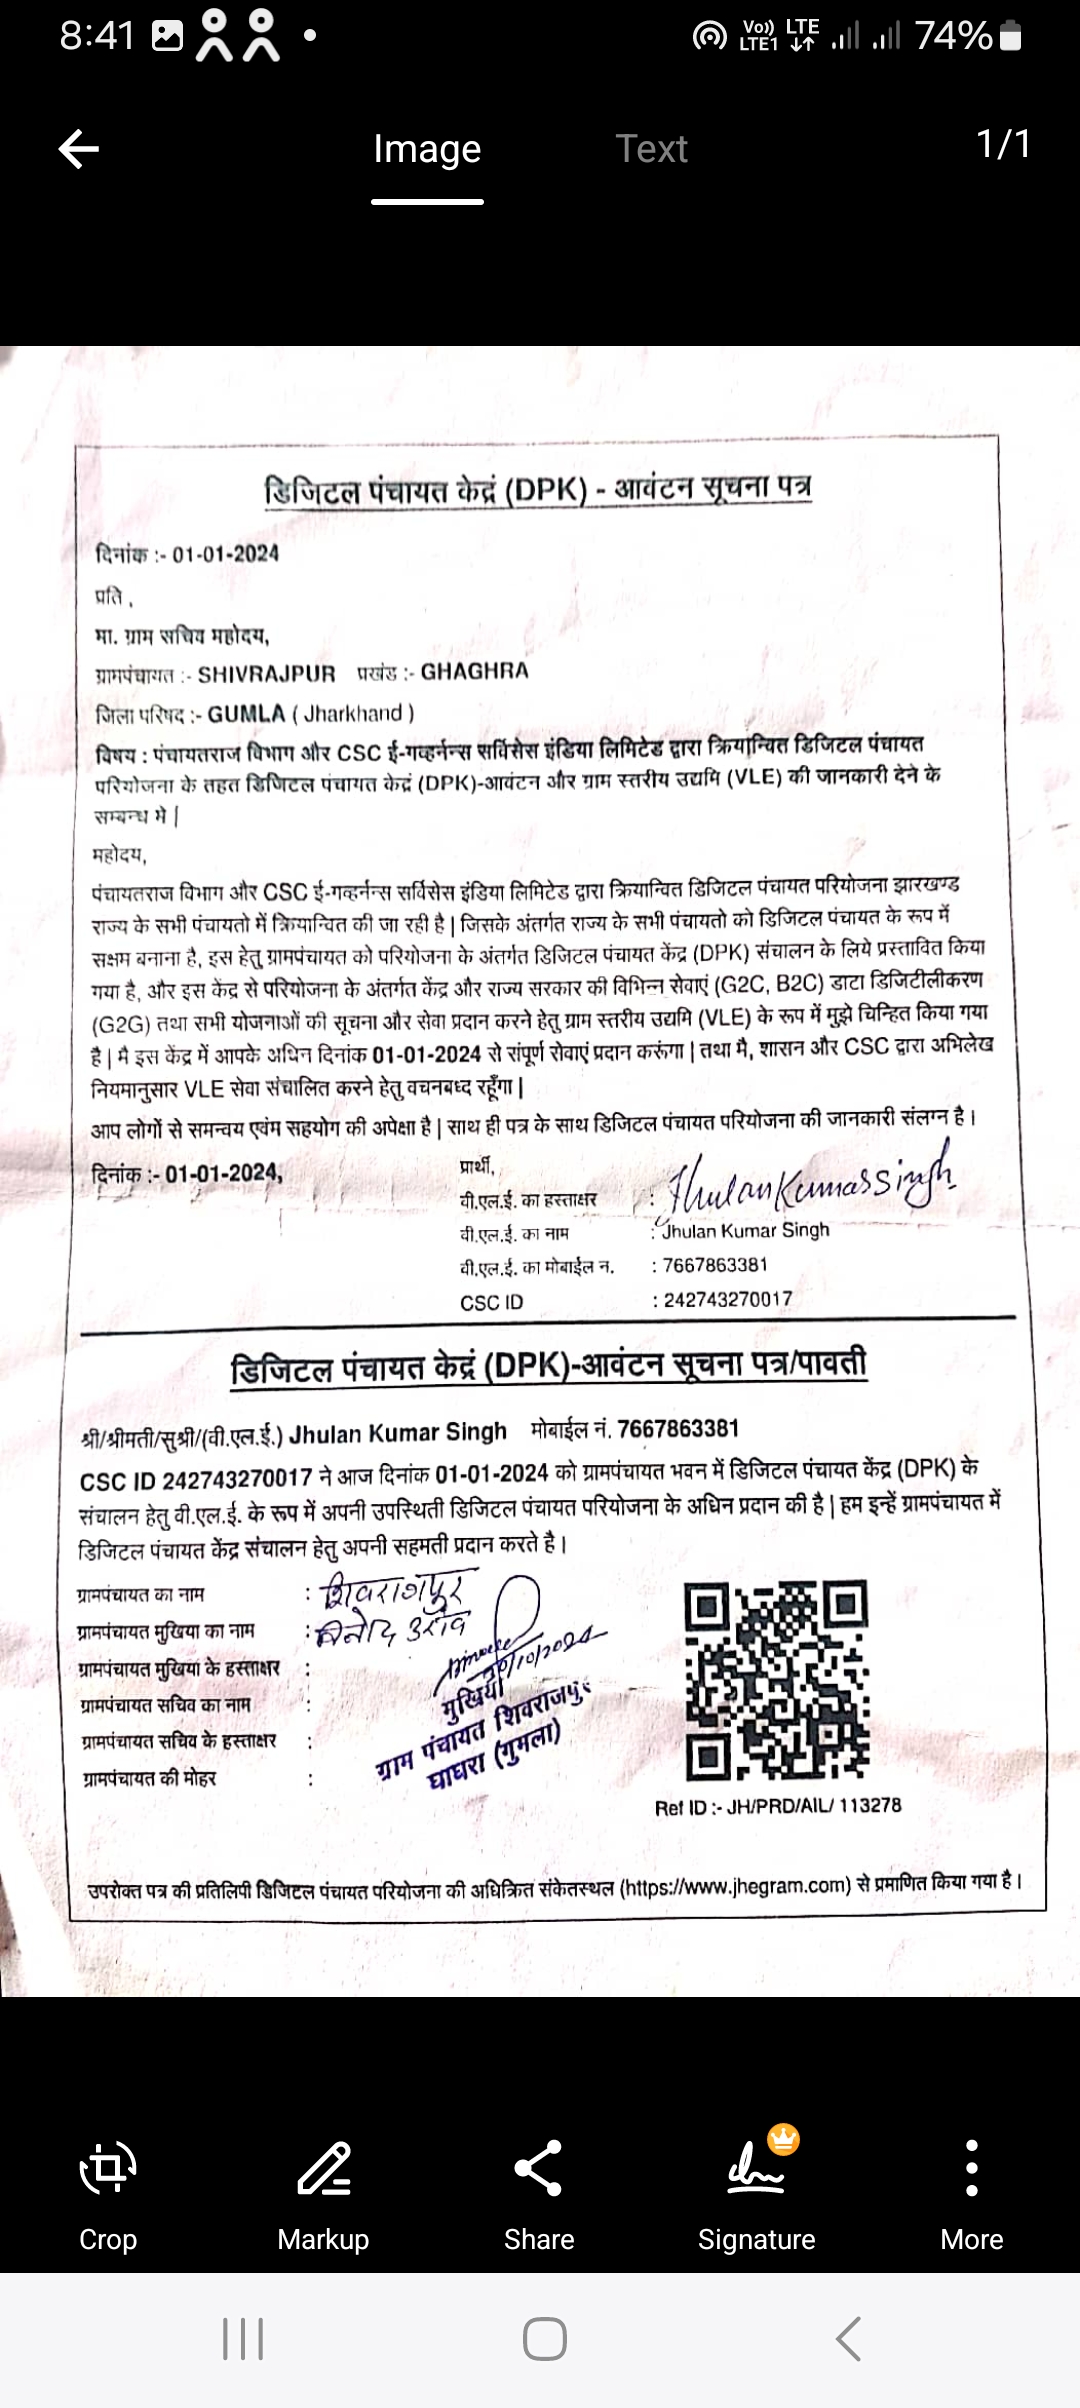 8:41 Vo)) LTE1 LTE 74%
Image Text 1/1
डिजिटल पंचायत केद्रं (DPK) - आवंटन सूचना पत्र
दिनांक :- 01-01-2024
प्रति ,
मा. ग्राम सचिव महोदय,
ग्रामपंचायत :- SHIVRAJPUR प्रखंड :- GHAGHRA
जिला परिषद :- GUMLA ( Jharkhand )
विषय : पंचायतराज विभाग और CSC ई-गव्हर्नन्स सर्विसेस इंडिया लिमिटेड द्वारा क्रियान्वित डिजिटल पंचायत
परियोजना के तहत डिजिटल पंचायत केद्रं (DPK)-आवंटन और ग्राम स्तरीय उद्यमि (VLE) की जानकारी देने के
सम्बन्ध मे |
महोदय,
पंचायतराज विभाग और CSC ई-गव्हर्नन्स सर्विसेस इंडिया लिमिटेड द्वारा क्रियान्वित डिजिटल पंचायत परियोजना झारखण्ड
राज्य के सभी पंचायतो में क्रियान्वित की जा रही है | जिसके अंतर्गत राज्य के सभी पंचायतो को डिजिटल पंचायत के रूप में
सक्षम बनाना है, इस हेतु ग्रामपंचायत को परियोजना के अंतर्गत डिजिटल पंचायत केंद्र (DPK) संचालन के लिये प्रस्तावित किया
गया है, और इस केंद्र से परियोजना के अंतर्गत केंद्र और राज्य सरकार की विभिन्न सेवाएं (G2C, B2C) डाटा डिजिटीलीकरण
(G2G) तथा सभी योजनाओं की सूचना और सेवा प्रदान करने हेतु ग्राम स्तरीय उद्यमि (VLE) के रूप में मुझे चिन्हित किया गया
है | मै इस केंद्र में आपके अधिन दिनांक 01-01-2024 से संपूर्ण सेवाएं प्रदान करूंगा | तथा मै, शासन और CSC द्वारा अभिलेख
नियमानुसार VLE सेवा संचालित करने हेतु वचनबध्द रहूँगा |
आप लोगों से समन्वय एवंम सहयोग की अपेक्षा है | साथ ही पत्र के साथ डिजिटल पंचायत परियोजना की जानकारी संलग्न है।
दिनांक :- 01-01-2024, प्रार्थी,
वी.एल.ई. का हस्ताक्षर : Jhulan Kumar Singh
वी.एल.ई. का नाम : Jhulan Kumar Singh
वी.एल.ई. का मोबाईल न. : 7667863381
CSC ID : 242743270017
डिजिटल पंचायत केद्रं (DPK)-आवंटन सूचना पत्र/पावती
श्री/श्रीमती/सुश्री/(वी.एल.ई.) Jhulan Kumar Singh मोबाईल नं. 7667863381
CSC ID 242743270017 ने आज दिनांक 01-01-2024 को ग्रामपंचायत भवन में डिजिटल पंचायत केंद्र (DPK) के
संचालन हेतु वी.एल.ई. के रूप में अपनी उपस्थिती डिजिटल पंचायत परियोजना के अधिन प्रदान की है | हम इन्हें ग्रामपंचायत में
डिजिटल पंचायत केंद्र संचालन हेतु अपनी सहमती प्रदान करते है।
ग्रामपंचायत का नाम : शिवराजपुर
ग्रामपंचायत मुखिया का नाम : विनोद उराँव
ग्रामपंचायत मुखिया के हस्ताक्षर :
ग्रामपंचायत सचिव का नाम :
ग्रामपंचायत सचिव के हस्ताक्षर :
ग्रामपंचायत की मोहर :
मुखिया
ग्राम पंचायत शिवराजपुर
घाघरा (गुमला)
Ref ID :- JH/PRD/AIL/ 113278
उपरोक्त पत्र की प्रतिलिपी डिजिटल पंचायत परियोजना की अधिक्रित संकेतस्थल (https://www.jhegram.com) से प्रमाणित किया गया है।
Crop Markup Share Signature More